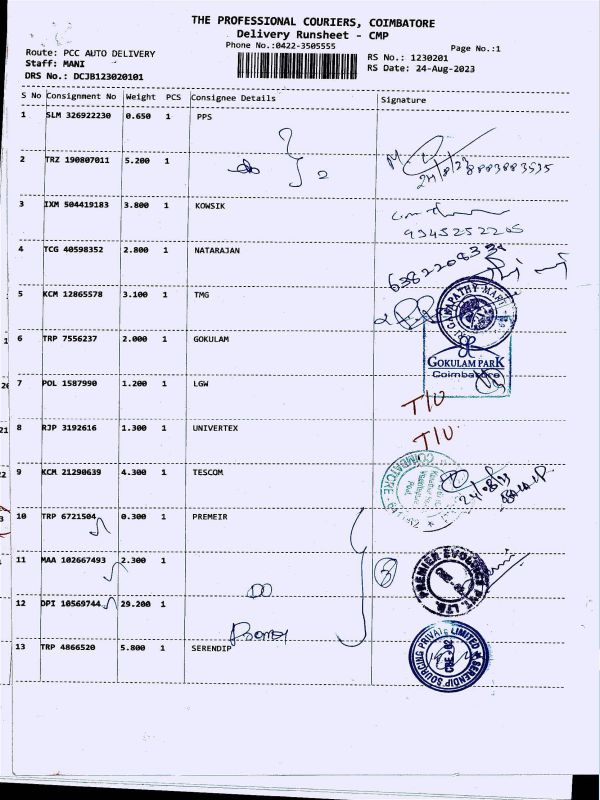 THE PROFESSIONAL COURIERS, COIMBATORE
Delivery Runsheet - CMP
Phone No.:0422-3505555
Page No.:1
Route: PCC AUTO DELIVERY
Staff: MANI
DRS No.: DCJB123020101
RS No.: 1230201
RS Date: 24-Aug-2023
S No Consignment No Weight PCS Consignee Details Signature
1 SLM 326922230 0.650 1 PPS
2 TRZ 190807011 5.200 1
2
24/8/23 8883883535
3 IXM 504419183 3.800 1 KOWSIK
9345252205
4 TCG 40598352 2.800 1 NATARAJAN
5 KCM 12865578 3.100 1 TMG
6 TRP 7556237 2.000 1 GOKULAM
GOKULAM PARK
Coimbatore
7 POL 1587990 1.200 1 LGW
T/U
8 RJP 3192616 1.300 1 UNIVERTEX
T/U
9 KCM 21290639 4.300 1 TESCOM
24/08/23
10 TRP 6721504 0.300 1 PREMEIR
11 MAA 102667493 2.300 1
3
PREMIER EVOLVICS PVT. LTD.
12 DPI 10569744 29.200 1
13 TRP 4866520 5.800 1 SERENDIP
SERENDIP SOURCING PRIVATE LIMITED
CBE - 02